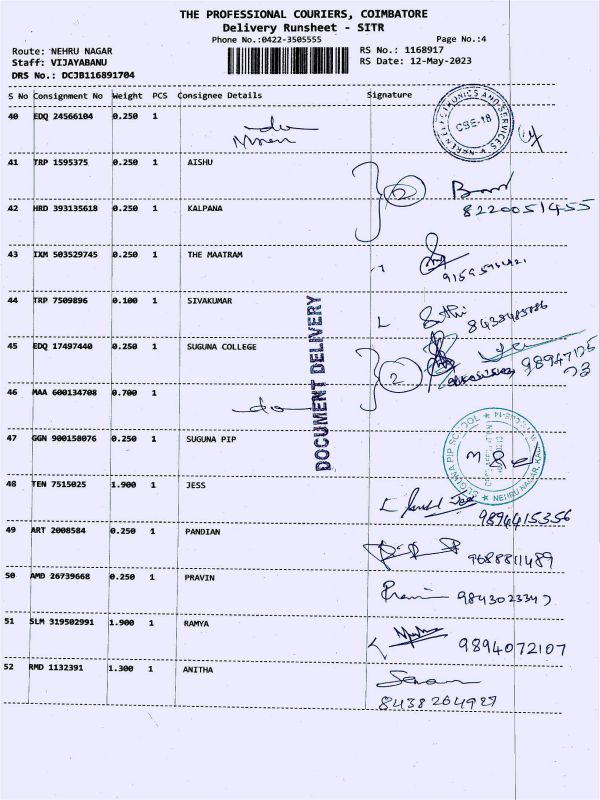 THE PROFESSIONAL COURIERS, COIMBATORE
Delivery Runsheet - SITR
Phone No.:0422-3505555 Page No.:4
Route: NEHRU NAGAR RS No.: 1168917
Staff: VIJAYABANU RS Date: 12-May-2023
DRS No.: DCJB116891704
S No Consignment No Weight PCS Consignee Details Signature
40 EDQ 24566104 0.250 1
do
CSE-18
41 TRP 1595375 0.250 1 AISHU
2
42 HRD 393135618 0.250 1 KALPANA 8220051455
43 IXM 503529745 0.250 1 THE MAATRAM
44 TRP 7509896 0.100 1 SIVAKUMAR
45 EDQ 17497440 0.250 1 SUGUNA COLLEGE
2
46 MAA 600134708 0.700 1
do
DOCUMENT DELIVERY
47 GGN 900158076 0.250 1 SUGUNA PIP
SUGUNA PIP SCHOOL
NEHRU NAGAR
48 TEN 7515025 1.900 1 JESS
9894415356
49 ART 2008584 0.250 1 PANDIAN
9688811489
50 AMD 26739668 0.250 1 PRAVIN Pravin
51 SLM 319502991 1.900 1 RAMYA 9894072107
52 RMD 1132391 1.300 1 ANITHA
8438264927